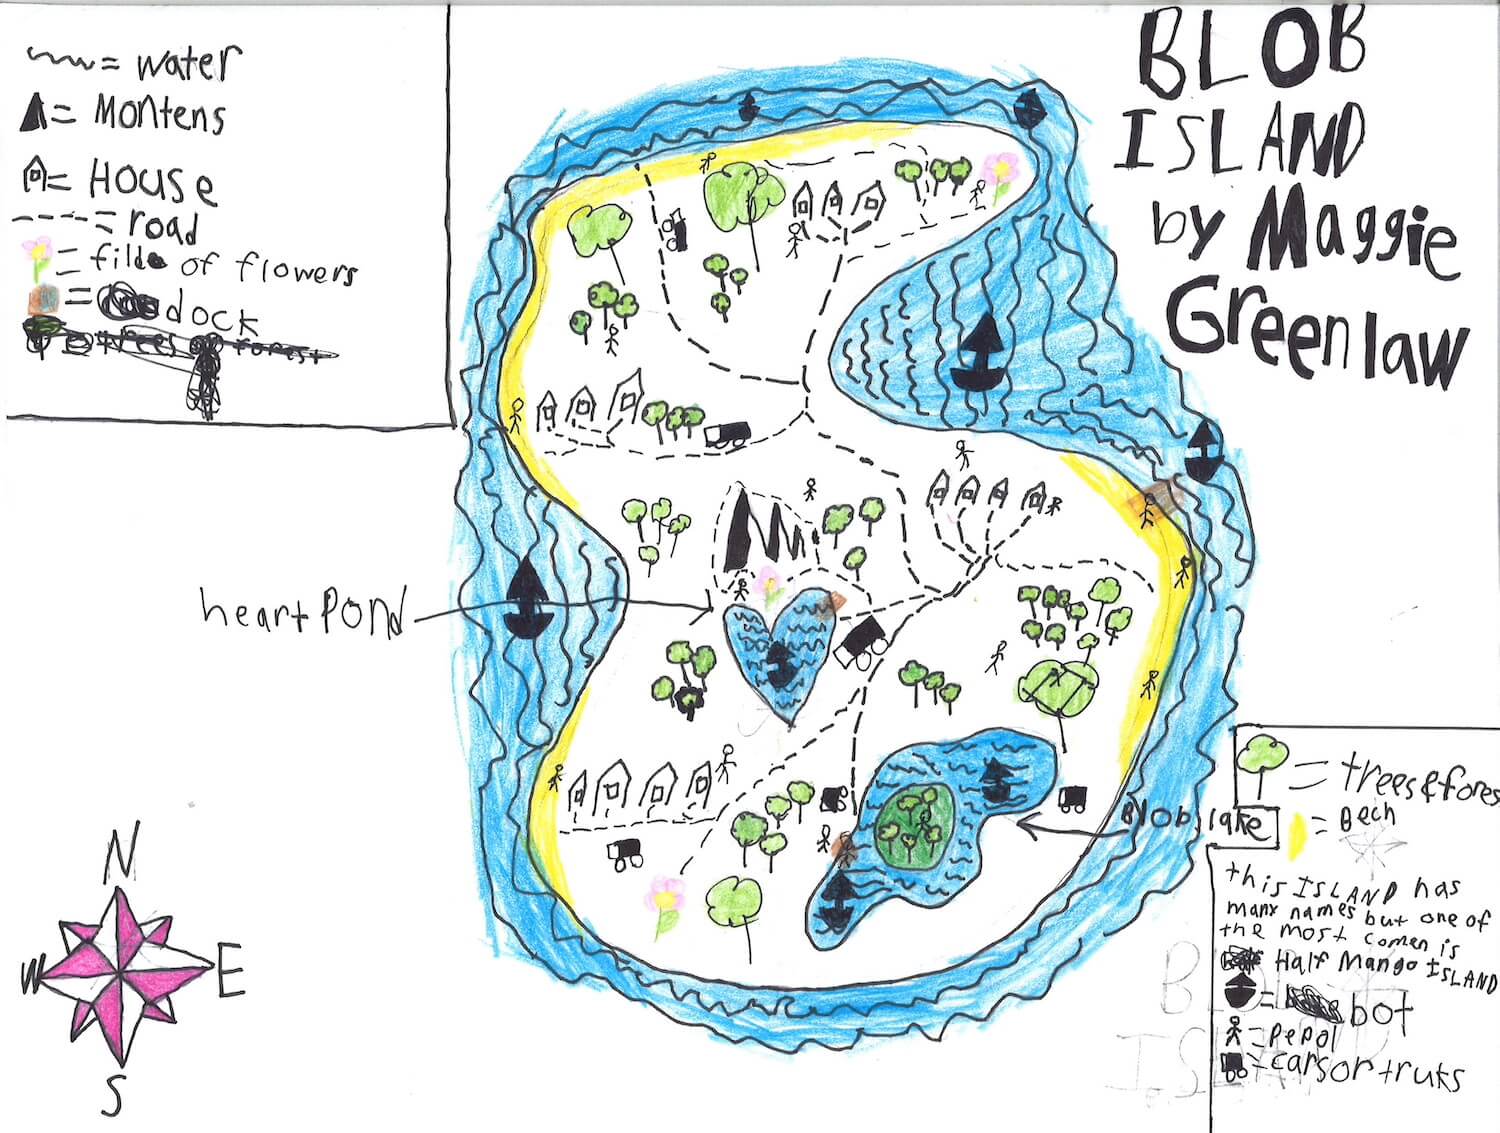 BLOB
ISLAND
by Maggie
Greenlaw
= water
= Montens
= House
= road
= filde of flowers
= dock
= trees forest
heart Pond
N
W E
S
= trees & fores
Blob lake
= Bech
this ISLAND has
many names but one of
the most comen is
Half Mango ISLAND
= bot
= Pepol
= cars or truks
BLOB
ISLAND